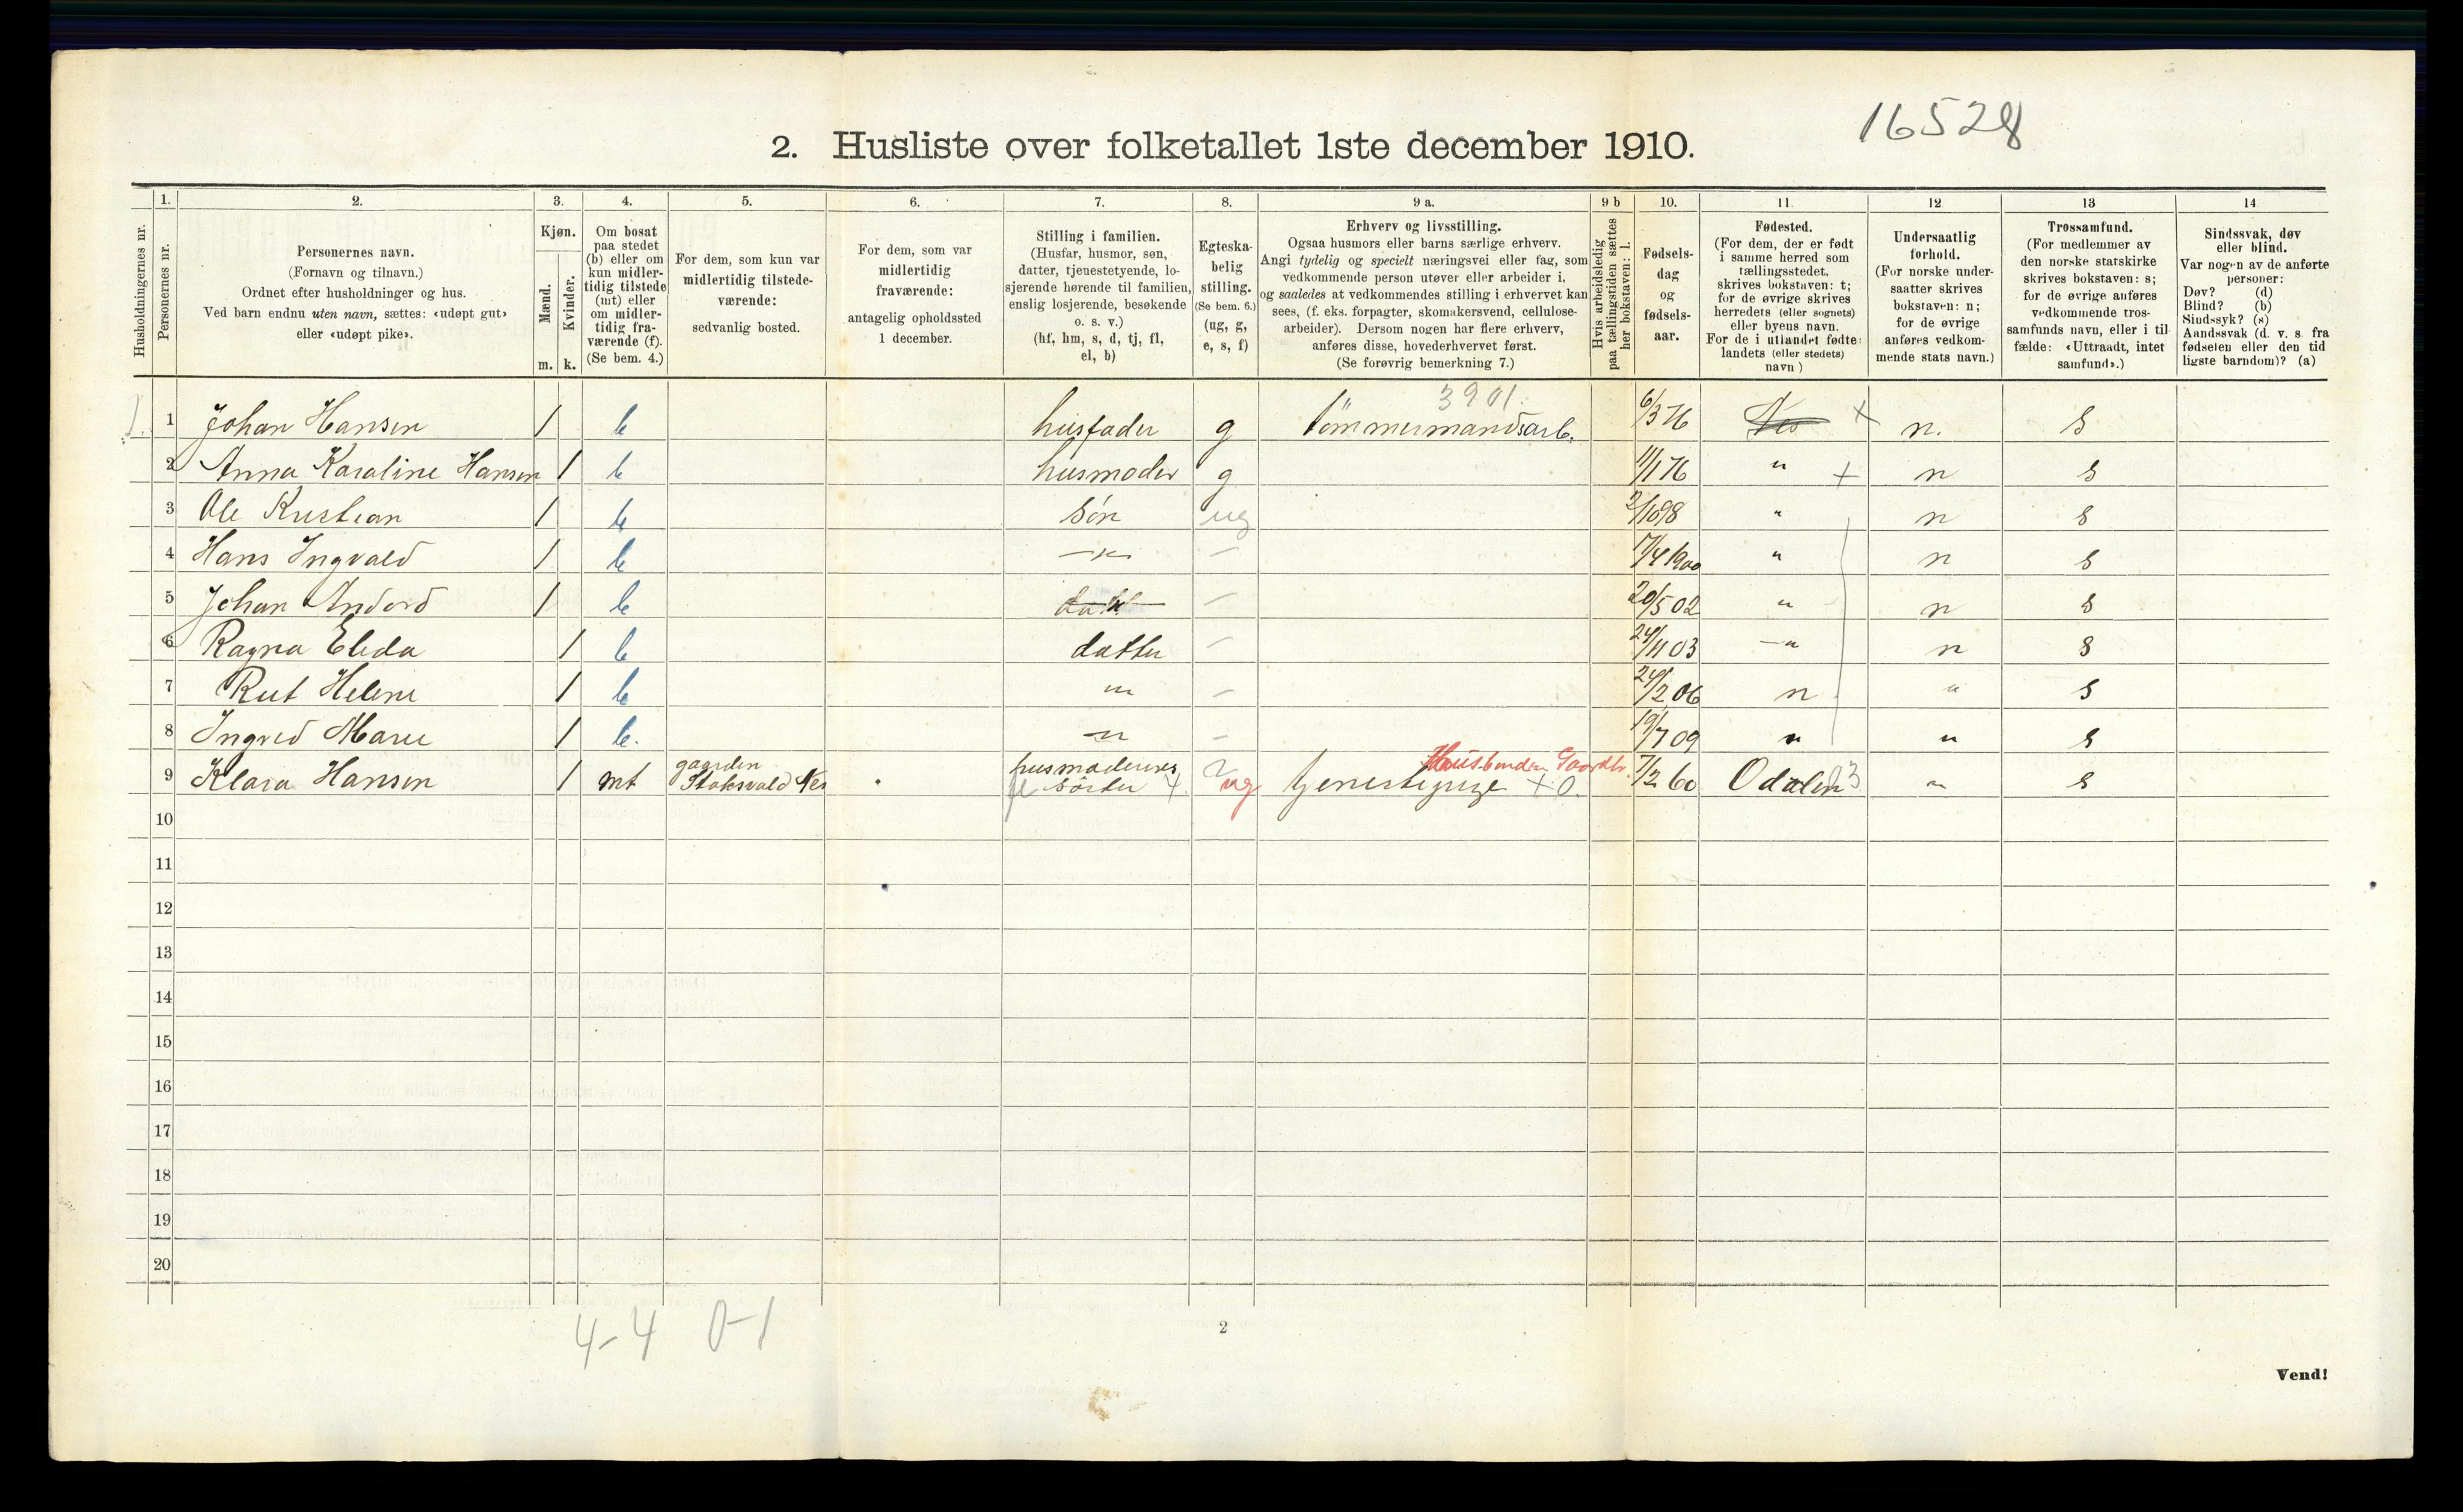 16528
2. Husliste over folketallet 1ste december 1910.
Husholdningernes nr.
1.
Personernes nr.
2.
Personernes navn.
(Fornavn og tilnavn.)
Ordnet efter husholdninger og hus.
Ved barn endnu uten navn, sættes: «udøpt gut»
eller «udøpt pike».
3.
Kjøn.
Mænd.
Kvinder.
m. k.
4.
Om bosat
paa stedet
(b) eller om
kun midler-
tidig tilstede
(mt) eller
om midler-
tidig fra-
værende (f).
(Se bem. 4.)
5.
For dem, som kun var
midlertidig tilstede-
værende:
sedvanlig bosted.
6.
For dem, som var
midlertidig
fraværende:
antagelig opholdssted
1 december.
7.
Stilling i familien.
(Husfar, husmor, søn,
datter, tjenestetyende, lo-
sjerende hørende til familien,
enslig losjerende, besøkende
o. s. v.)
(hf, hm, s, d, tj, fl,
el, b)
8.
Egteska-
belig
stilling.
(Se bem. 6.)
(ug, g,
e, s, f)
9 a.
Erhverv og livsstilling.
Ogsaa husmors eller barns særlige erhverv.
Angi tydelig og specielt næringsvei eller fag, som
vedkommende person utøver eller arbeider i,
og saaledes at vedkommendes stilling i erhvervet kan
sees, (f. eks. forpagter, skomakersvend, cellulose-
arbeider). Dersom nogen har flere erhverv,
anføres disse, hovederhvervet først.
(Se forøvrig bemerkning 7.)
9 b
Hvis arbeidsledig
paa tællingstiden sættes
her bokstaven: l.
10.
Fødsels-
dag
og
fødsels-
aar.
11.
Fødested.
(For dem, der er født
i samme herred som
tællingsstedet,
skrives bokstaven: t;
for de øvrige skrives
herredets (eller sognets)
eller byens navn.
For de i utlandet fødte:
landets (eller stedets)
navn )
12
Undersaatlig
forhold.
(For norske under-
saatter skrives
bokstaven: n;
for de øvrige
anføres vedkom-
mende stats navn.)
13
Trossamfund.
(For medlemmer av
den norske statskirke
skrives bokstaven: s;
for de øvrige anføres
vedkommende tros-
samfunds navn, eller i til-
fælde: «Uttraadt, intet
samfund».)
14
Sindssvak, døv
eller blind.
Var nogen av de anførte
personer:
Døv? (d)
Blind? (b)
Sindssyk? (s)
Aandssvak (d. v. s. fra
fødselen eller den tid-
ligste barndom)? (a)
3901.
1. 1 Johan Hansen 1 b husfader g tömmermandsarb. 6/3 76 Nes + n. S
2 Anna Karoline Hansen 1 b husmoder g 11/1 76 " + n S
3 Ole Kristian 1 b sön ug 2/10 98 " n S
4 Hans Ingvald 1 b —"— — 17/4 1900 " n S
5 Johan 1 b — 20/5 02 " n S
6 Ragna Elida 1 b datter — 24/11 03 —" n S
7 Rut Helene 1 b " — 24/2 06 n " S
8 Ingrid Marie 1 b. —"— — 19/7 09 " " S
gaarden husmoderens Husbonden Gaardbr.
9 Klara Hansen 1 mt Stoksvald Nes söster ug tjenestepige + O. 7/2 60 Odalen 3 " S
10
11
12
13
14
15
16
17
18
19
20
4-4 0-1
2
Vend!